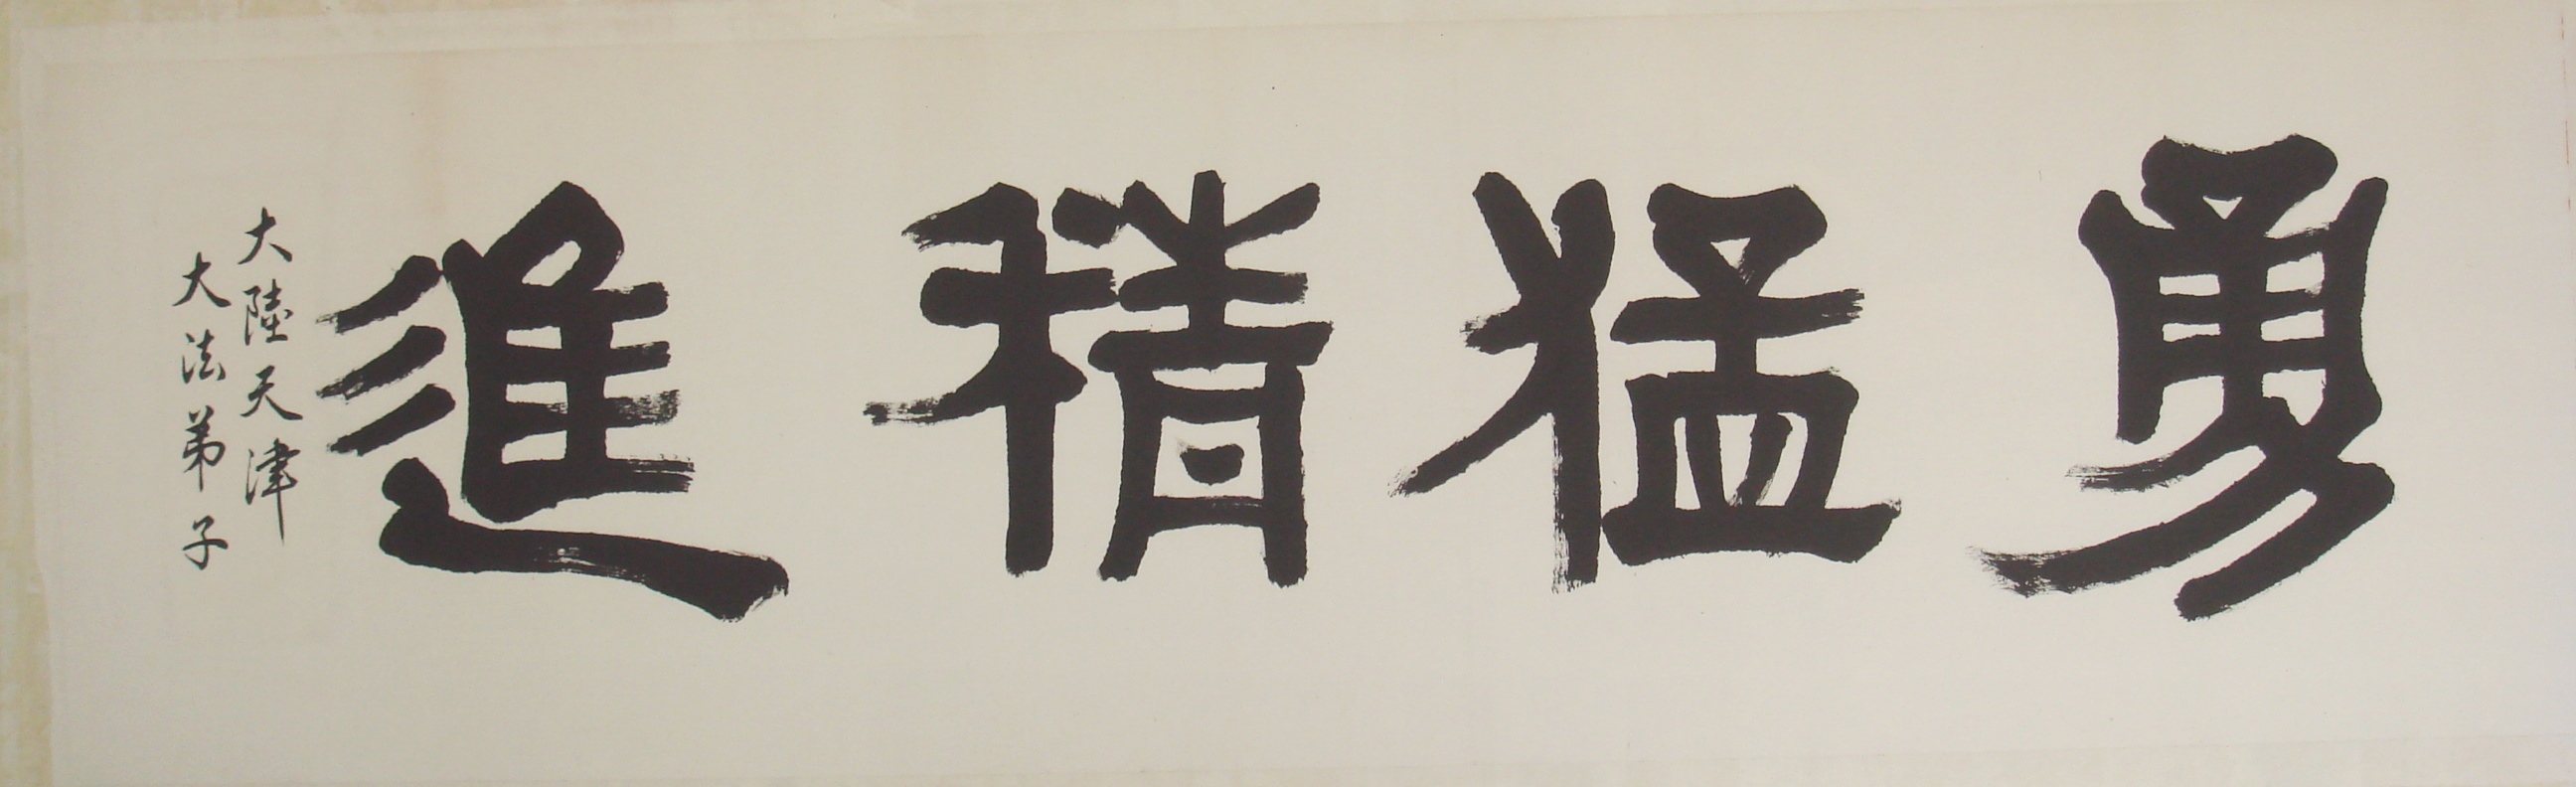 勇猛精進
大陸天津
大法弟子